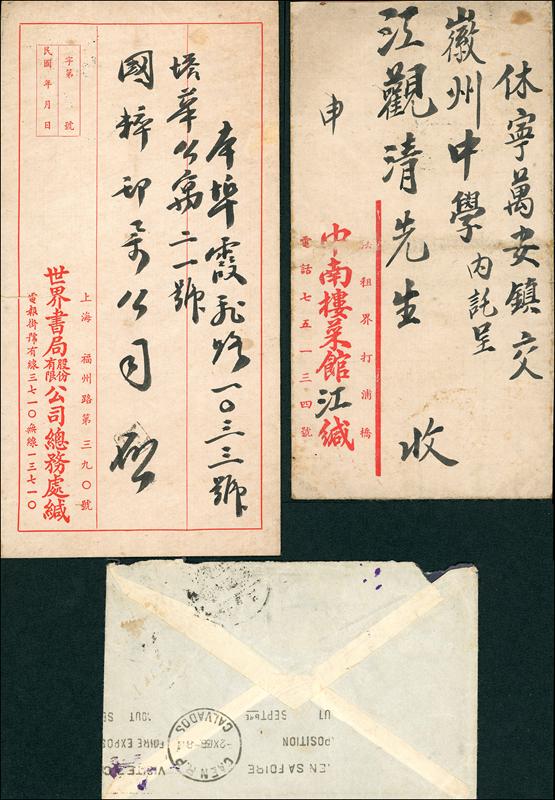 字第 號
民國 年 月 日
本埠霞飛路一〇三三號
塔華公寓二一號
國粹印刷公司 啟
上海 福州路第三九〇號
世界書局股份有限公司總務處緘
電報掛號有線三七一〇無線一三七一〇
休寧萬安鎮交
徽州中學內託呈
江觀清先生 收
申
法租界打浦橋
中南樓菜館江緘
電話七五一三四號
CAEN R.P.
CALVADOS
EN SA FOIRE
POSITION
UT SEPTBRE
VISITEZ C
FOIRE EXPOS
OUT SE